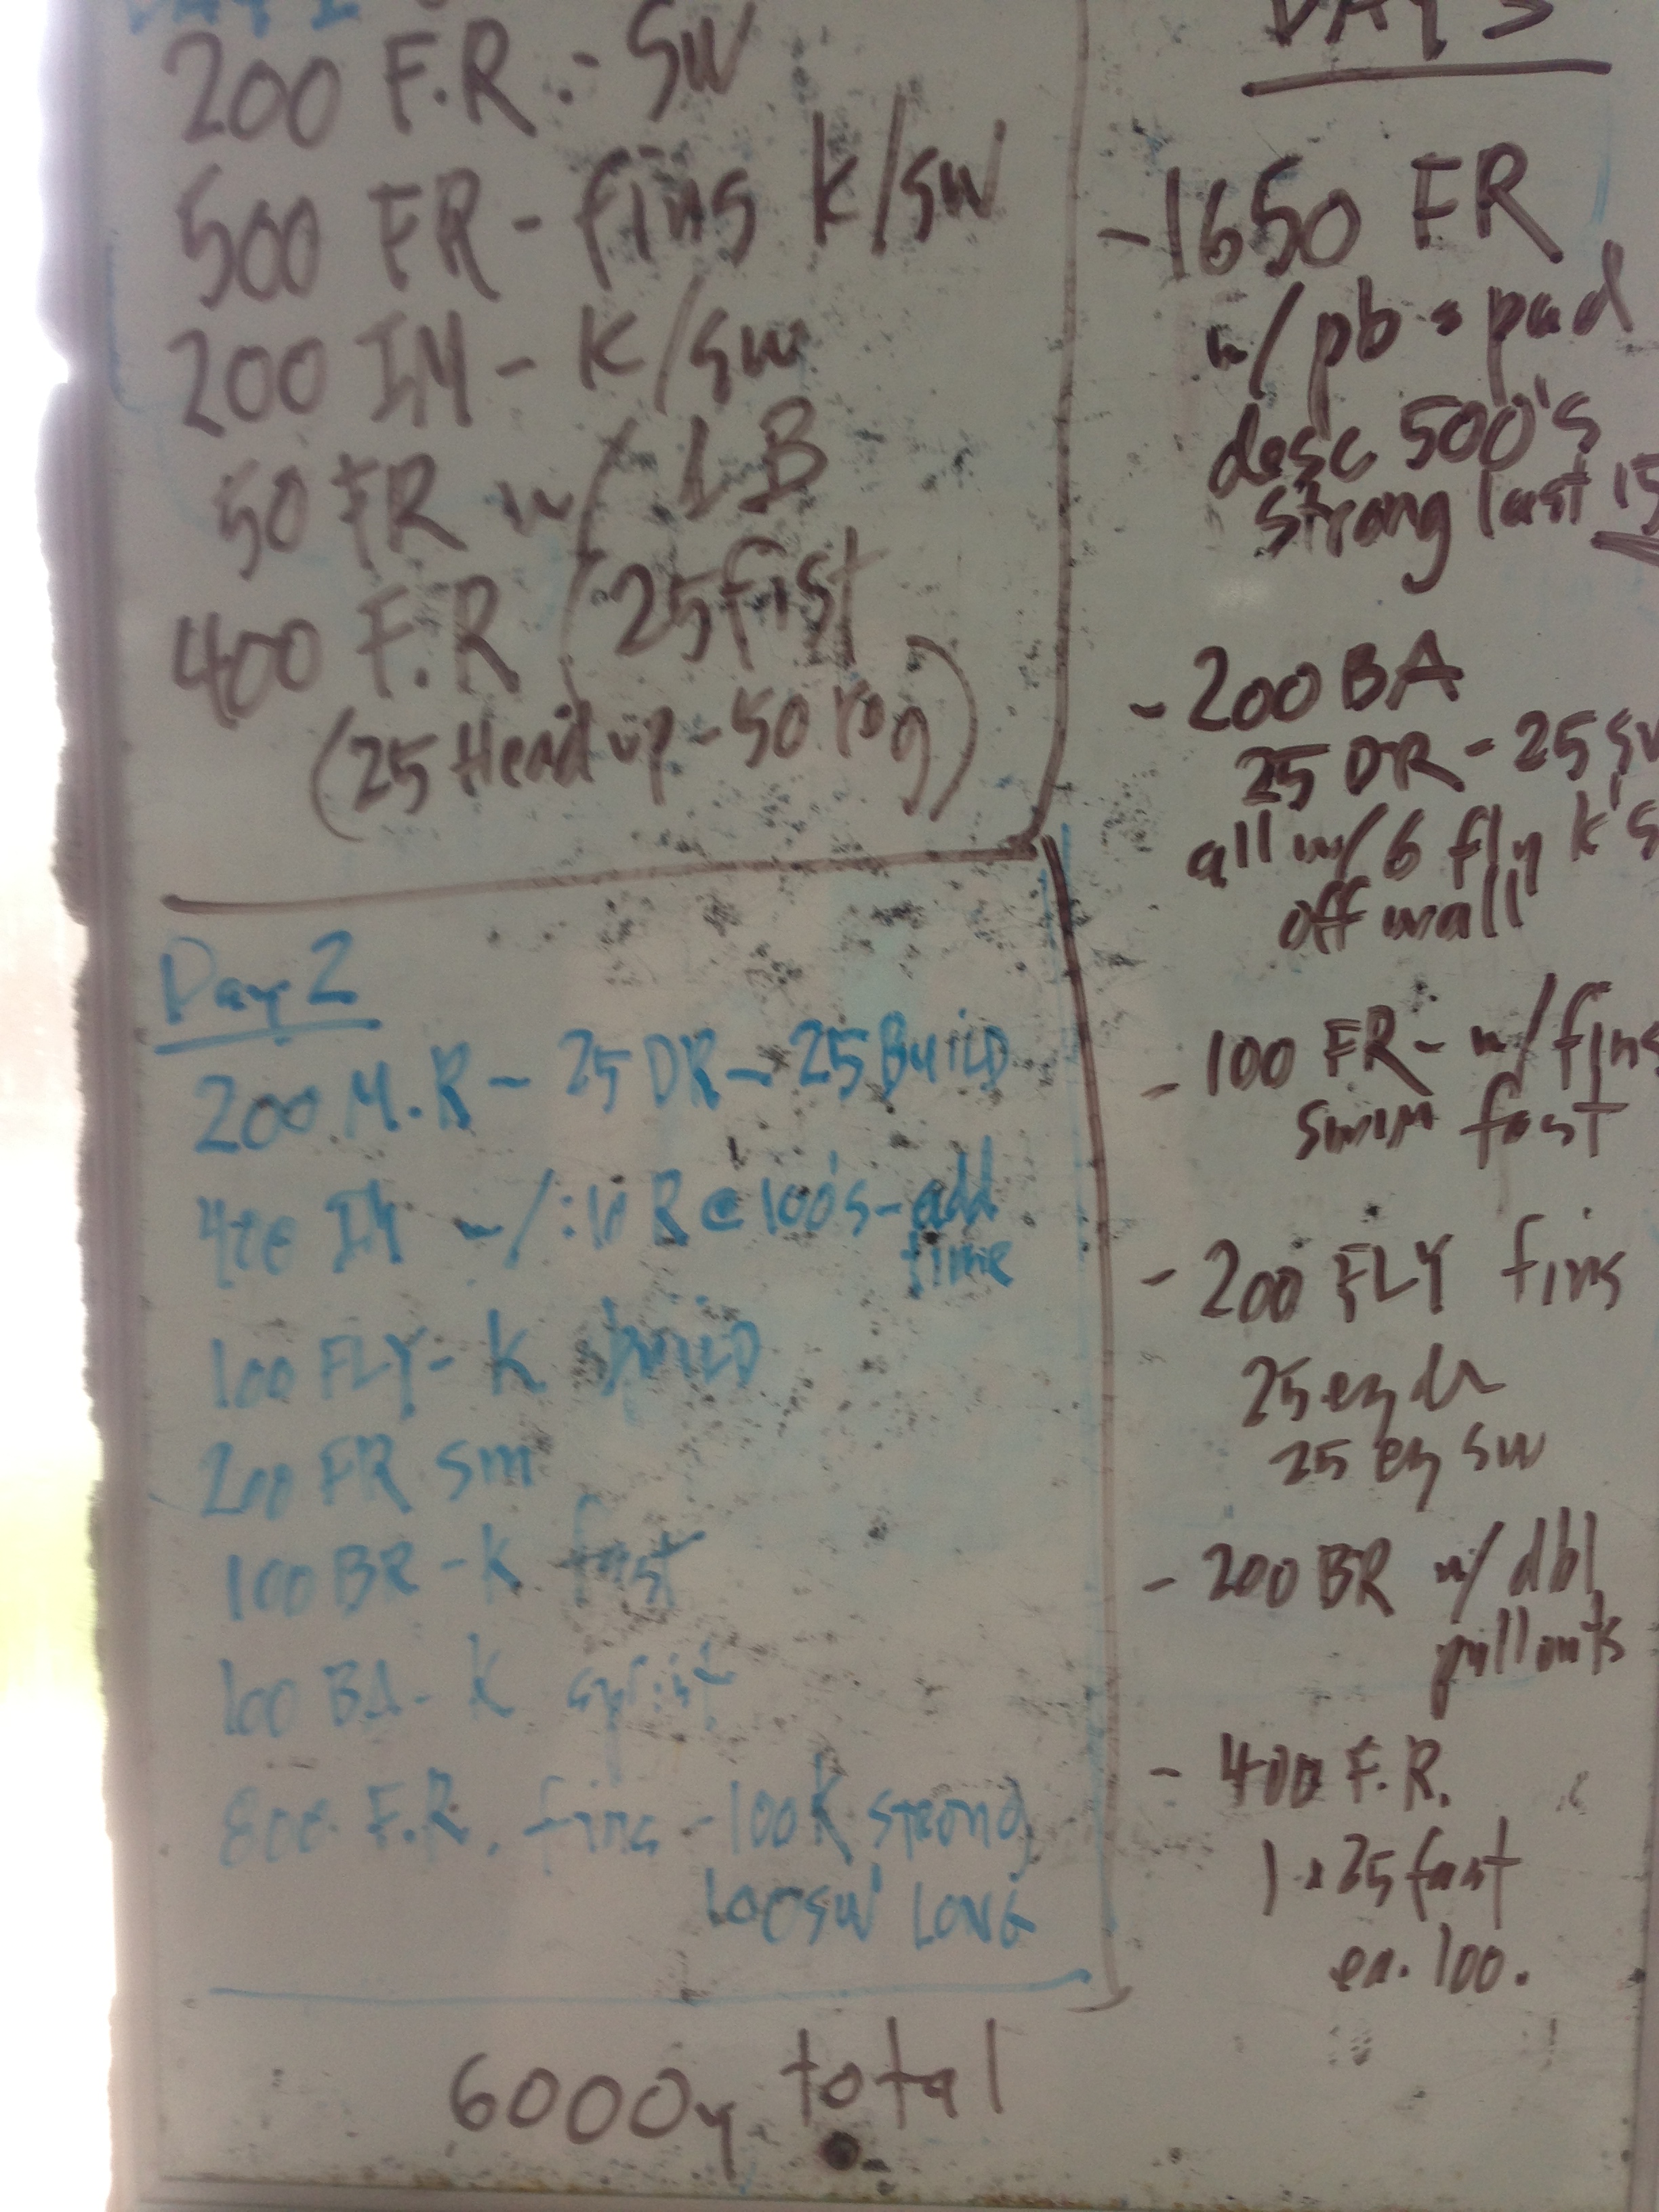 DAY 1
200 F.R. - SW
500 FR - fins K/SW
200 IM - K/SW
50 FR w/ LB
400 F.R (25 fist
(25 Head up - 50 reg)
Day 2
200 M.R - 25 DR - 25 Build
400 IM w/ :10 R @ 100's - add
time
100 FLY - K build
200 FR sm
100 BR - K fast
100 BA - K sprint
800 F.R. fins - 100K strong
100SW LONG
6000y total
DAY 3
- 1650 FR
w/ pb & pad
desc 500's
strong last 15
- 200 BA
25 DR - 25 SW
all w/ 6 fly k's
off wall
- 100 FR - w/ fins
swim fast
- 200 FLY fins
25 ez dr
25 ez SW
- 200 BR w/ dbl
pullouts
- 400 F.R.
1 x 25 fast
ea. 100.